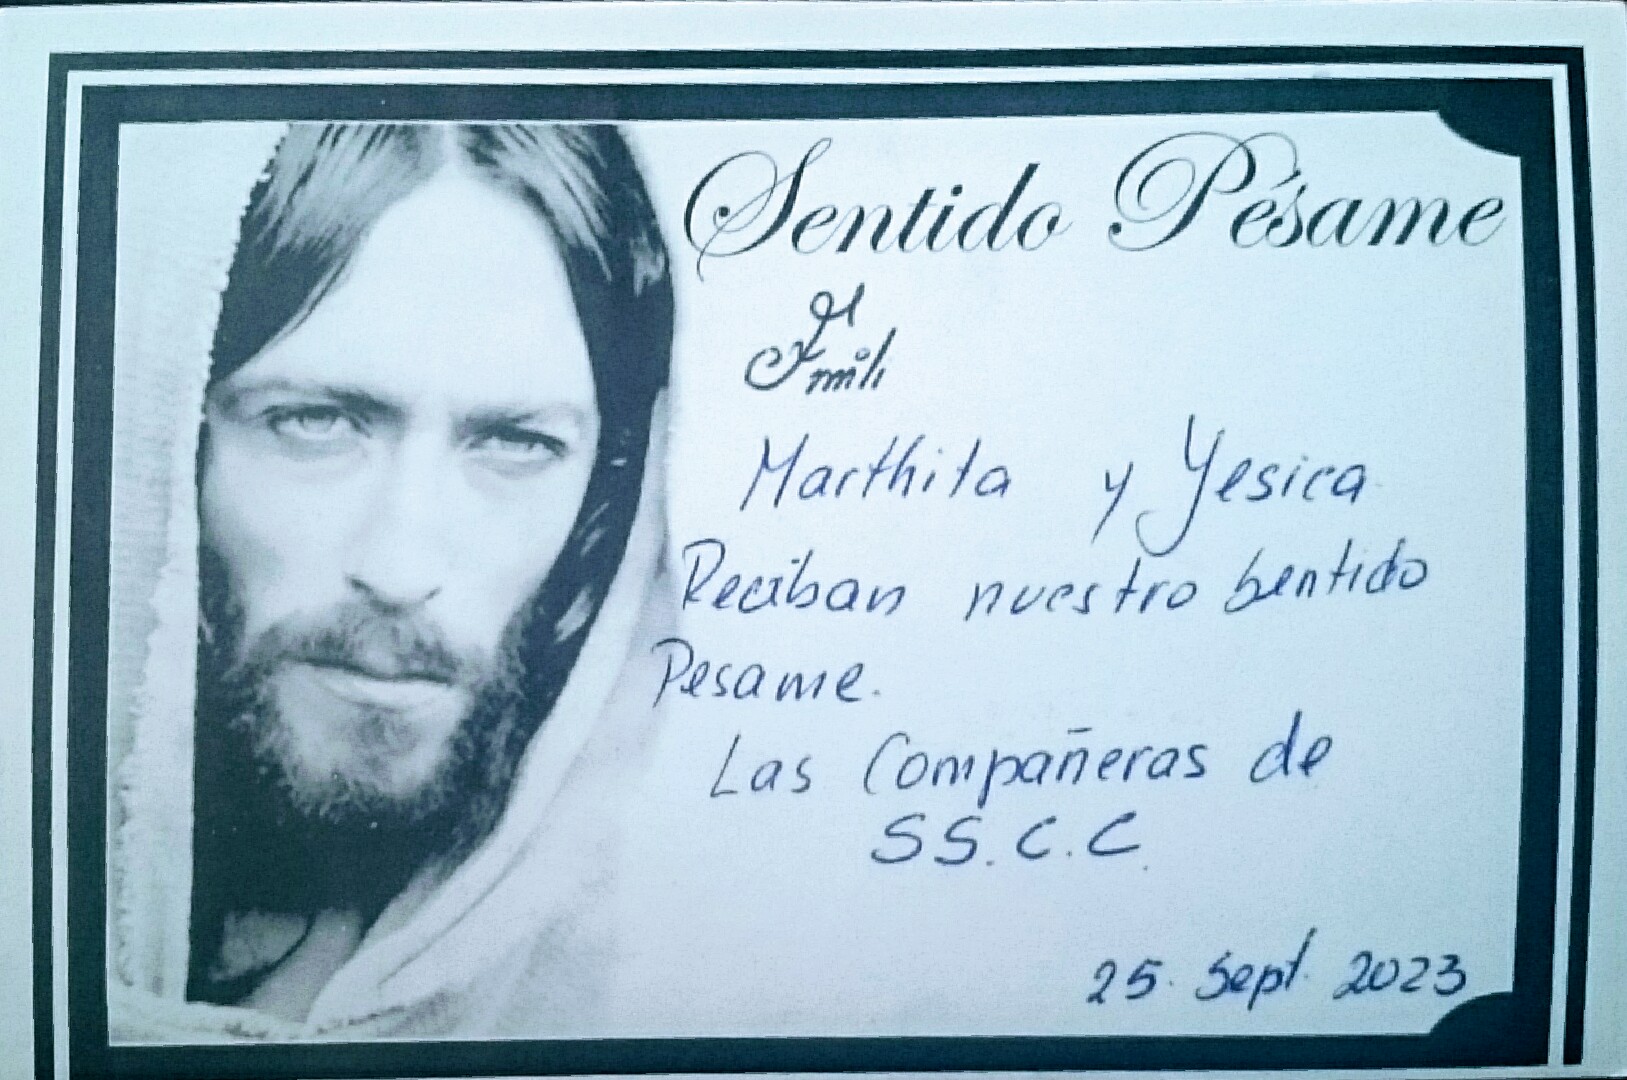 Sentido Pésame
Marthita y Yesica
Reciban nuestro sentido
Pesame.
Las Compañeras de
SS.C.C.
25. Sept. 2023